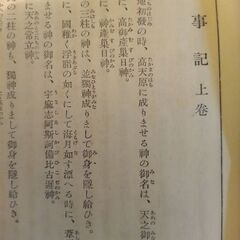 事記 上卷
地初發の時、高天原に成りませる神の御名は、天之御
、高御産巣日神。
神産巣日神。
の三柱の神は、並獨神成りまして御身を隱し給ひき。
、國稚く浮脂の如くにして海月如す漂へる時に、葦
ませる神の御名は、宇麻志阿斯訶備比古遲神。
に天之常立神。
の三柱の神も、獨神成りまして御身を隱し給ひき。